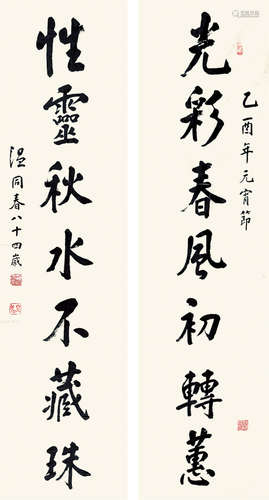 乙酉年元宵節
光彩春風初轉蕙
性靈秋水不藏珠
温同春八十四歲